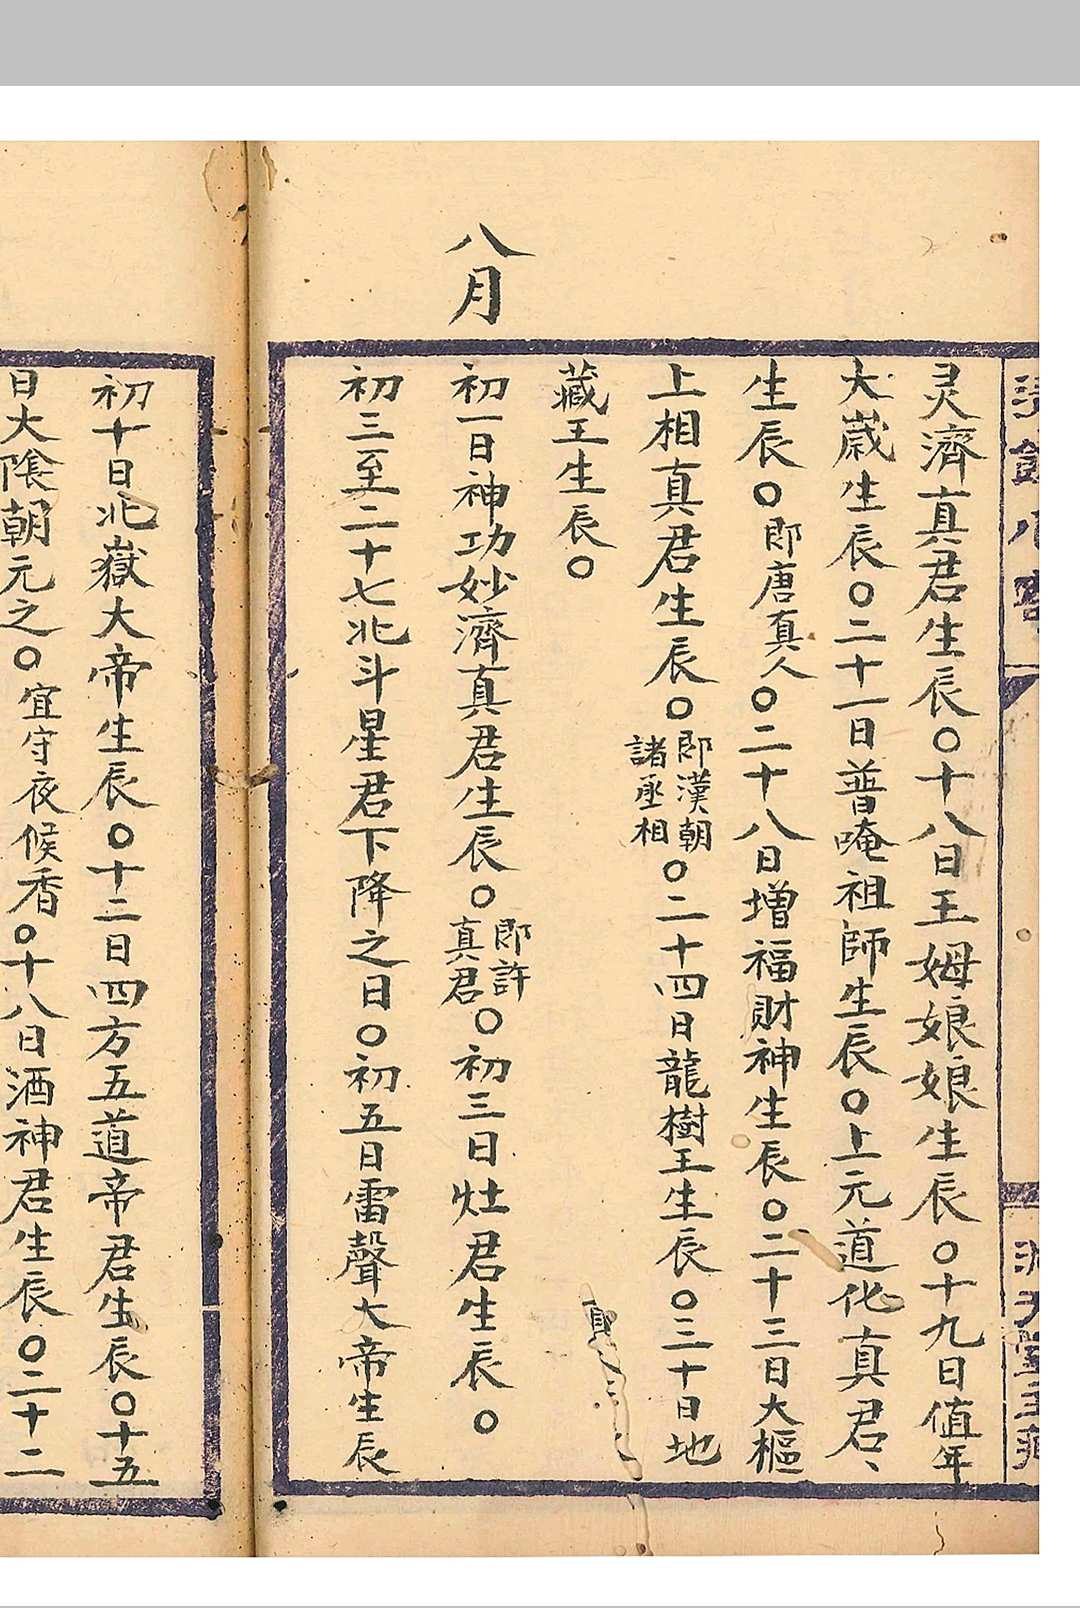 灵濟真君生辰○十八日王姆娘娘生辰○十九日值年
大歲生辰○二十一日普唵祖師生辰○上元道化真君、
生辰○即唐真人○二十八日增福財神生辰○二十三日大樞
上相真君生辰○即漢朝諸丞相○二十四日龍樹王生辰○三十日地
藏王生辰○
八月
初一日神功妙濟真君生辰○即許真君○初三日灶君生辰○
初三至二十七北斗星君下降之日○初五日雷聲大帝生辰
初十日北嶽大帝生辰○十二日四方五道帝君生辰○十五
日大陰朝元之○宜守夜候香○十八日酒神君生辰○二十二